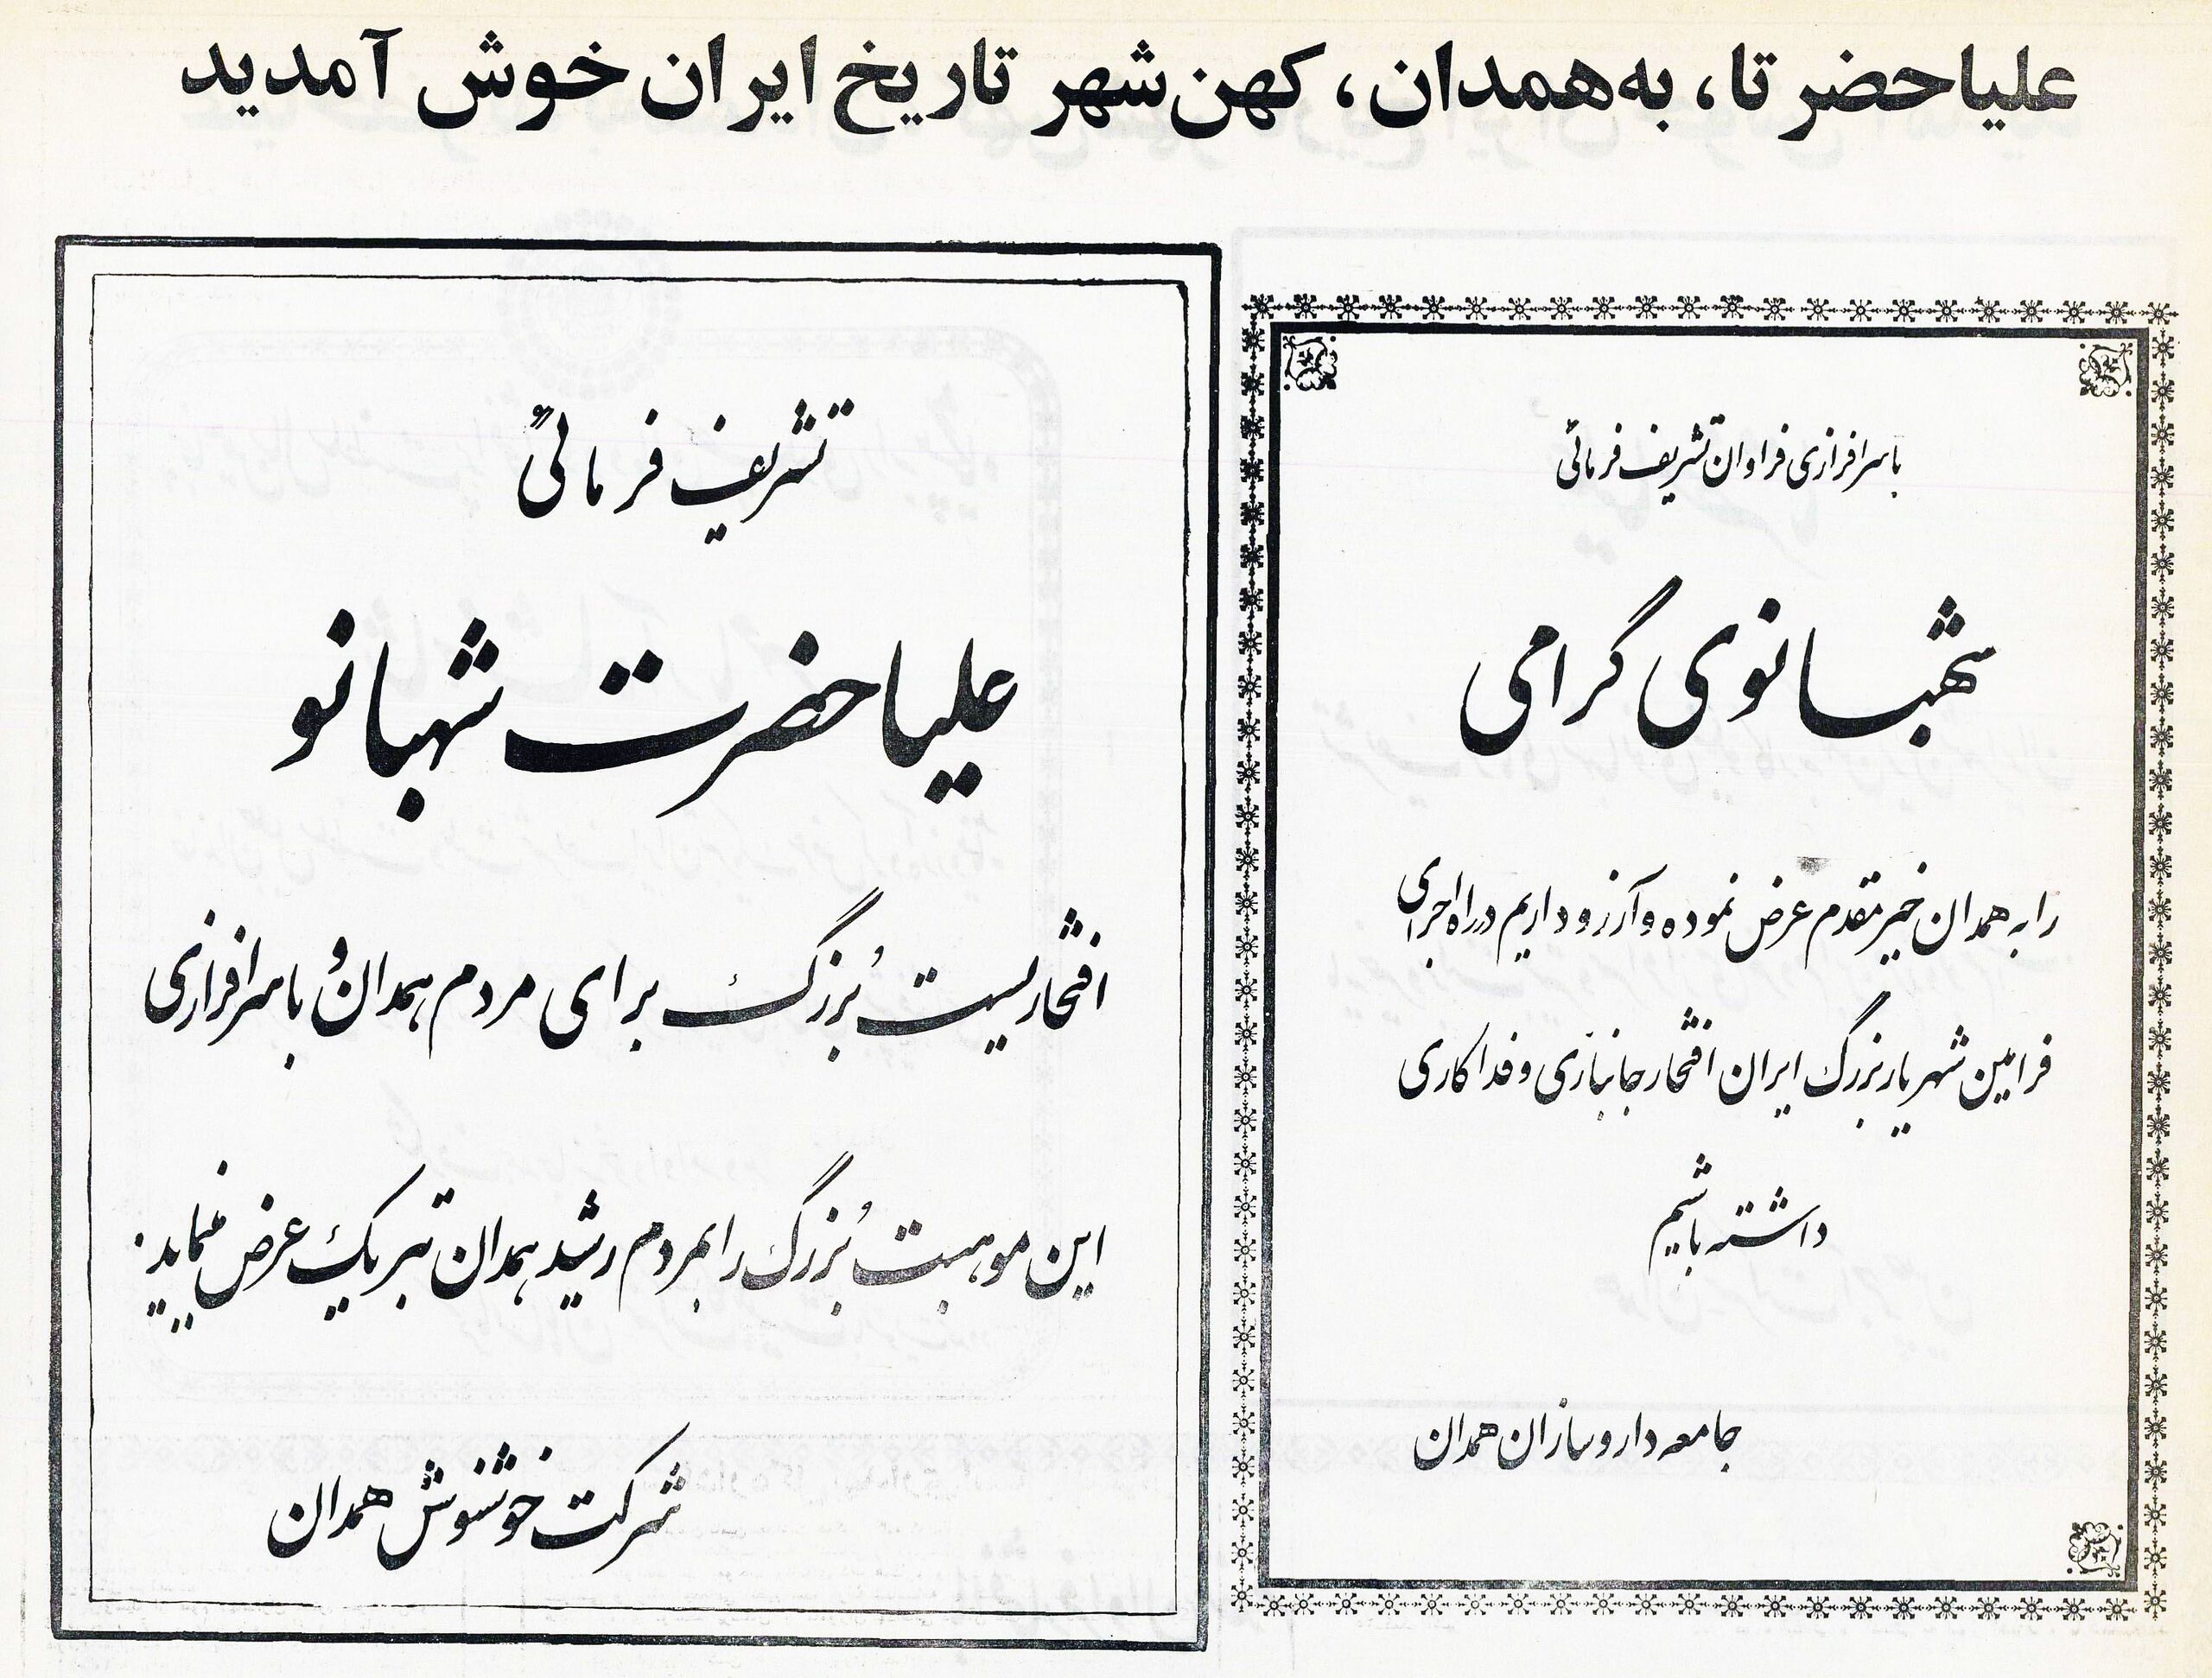 علیاحضرتا، به‌همدان، کهن‌شهر تاریخ ایران خوش آمدید
باسرافرازی فراوان تشریف فرمائی
شهبانوی گرامی
را به همدان خیرمقدم عرض نموده و آرزو داریم در راه اجرای
فرامین شهریار بزرگ ایران افتخار جانبازی و فداکاری
داشته باشیم
جامعه داروسازان همدان
تشریف فرمائی
علیاحضرت شهبانو
افتخاریست بُزرگ برای مردم همدان و باسرافرازی
این موهبت بُزرگ را بمردم رشید همدان تبریک عرض مینماید.
شرکت خوشنوش همدان